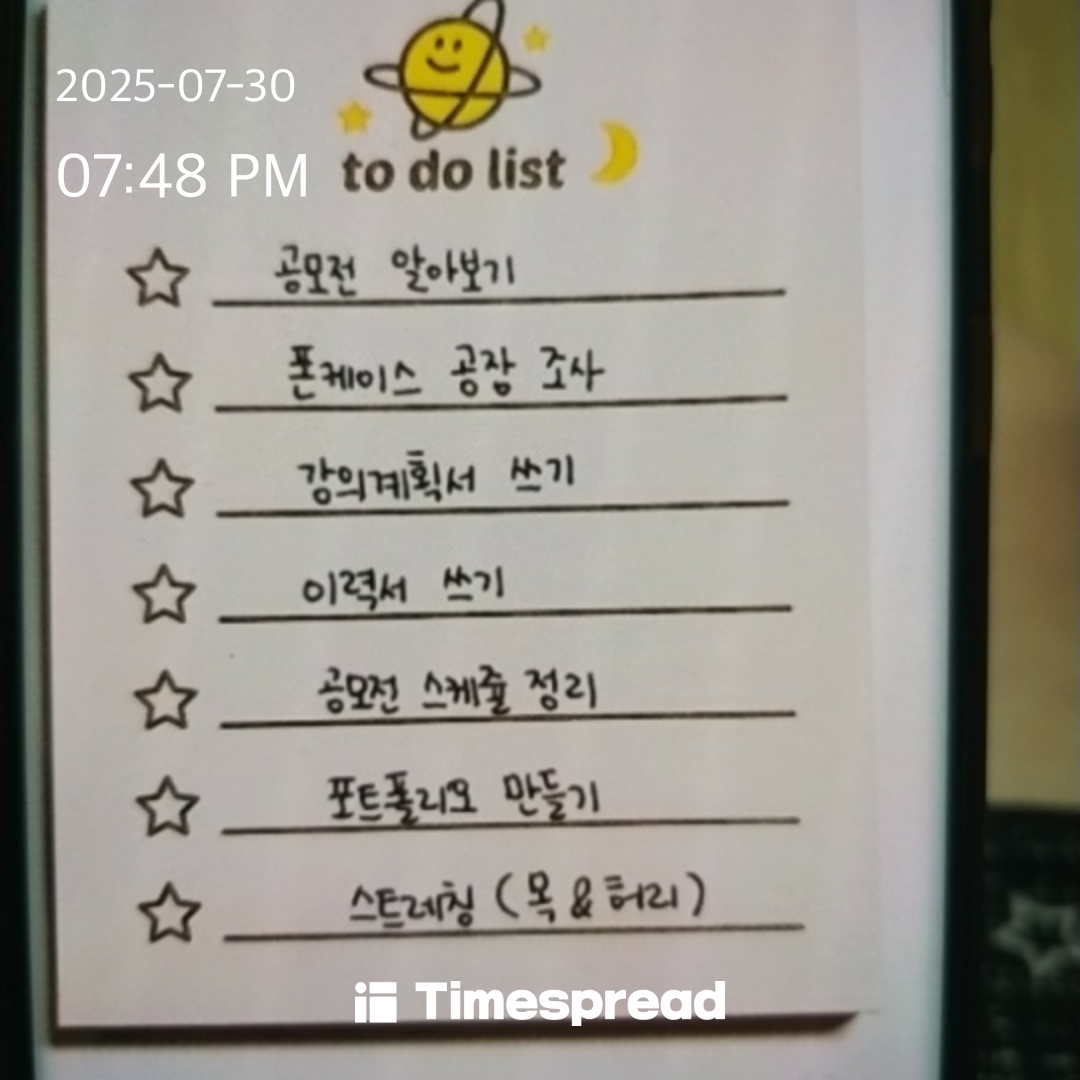 2025-07-30
07:48 PM
to do list
공모전 알아보기
폰케이스 공장 조사
강의계획서 쓰기
이력서 쓰기
공모전 스케쥴 정리
포트폴리오 만들기
스트레칭 (목 & 허리)
Timespread